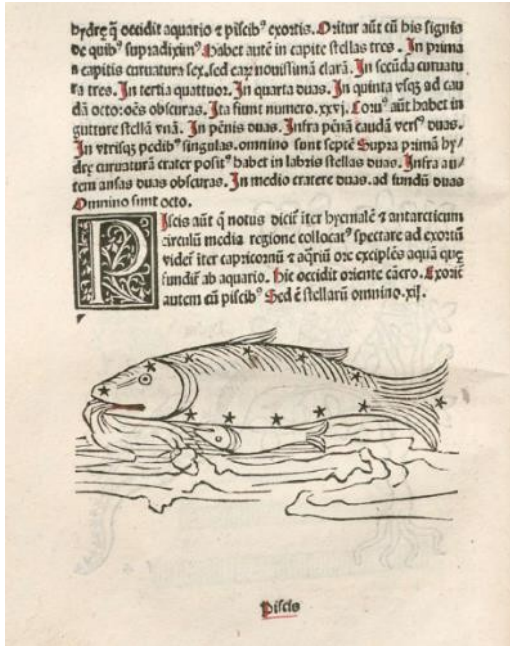 hydrę q̃ occidit aquario ⁊ piscibꝰ exortis. Oritur aũt cũ his signis
de quibꝰ supradiximꝰ. Habet autẽ in capite stellas tres. In prima
a capitis curuatura sex. sed eaꝝ nouissimã clarã. In secũda curuatu
ra tres. In tertia quattuor. In quarta duas. In quinta vsqꝫ ad cau
dã octo: oẽs obscuras. Ita fiunt numero. xxvj. Coruꝰ aũt habet in
gutture stellã vnã. In pẽnis duas. Infra pẽnã caudã versꝰ duas.
In vtrisqꝫ pedibꝰ singulas. omnino sunt septẽ Supra primã hy/
drę curuaturã crater positꝰ habet in labris stellas duas. Infra au/
tem ansas duas obscuras. In medio cratere duas. ad fundũ duas
Omnino sunt octo.
PIscis aũt q̃ notus dicit̃ iter hyemalẽ ⁊ antarcticum
circulũ media regione collocatꝰ spectare ad exortũ
videt̃ iter capricornũ ⁊ aq̃riũ ore excipiẽs aquã quę
fundit̃ ab aquario. hic occidit oriente cãcro. Exorit̃
autem cũ piscibꝰ Sed ẽ stellarũ omnino. xij.
Piscis